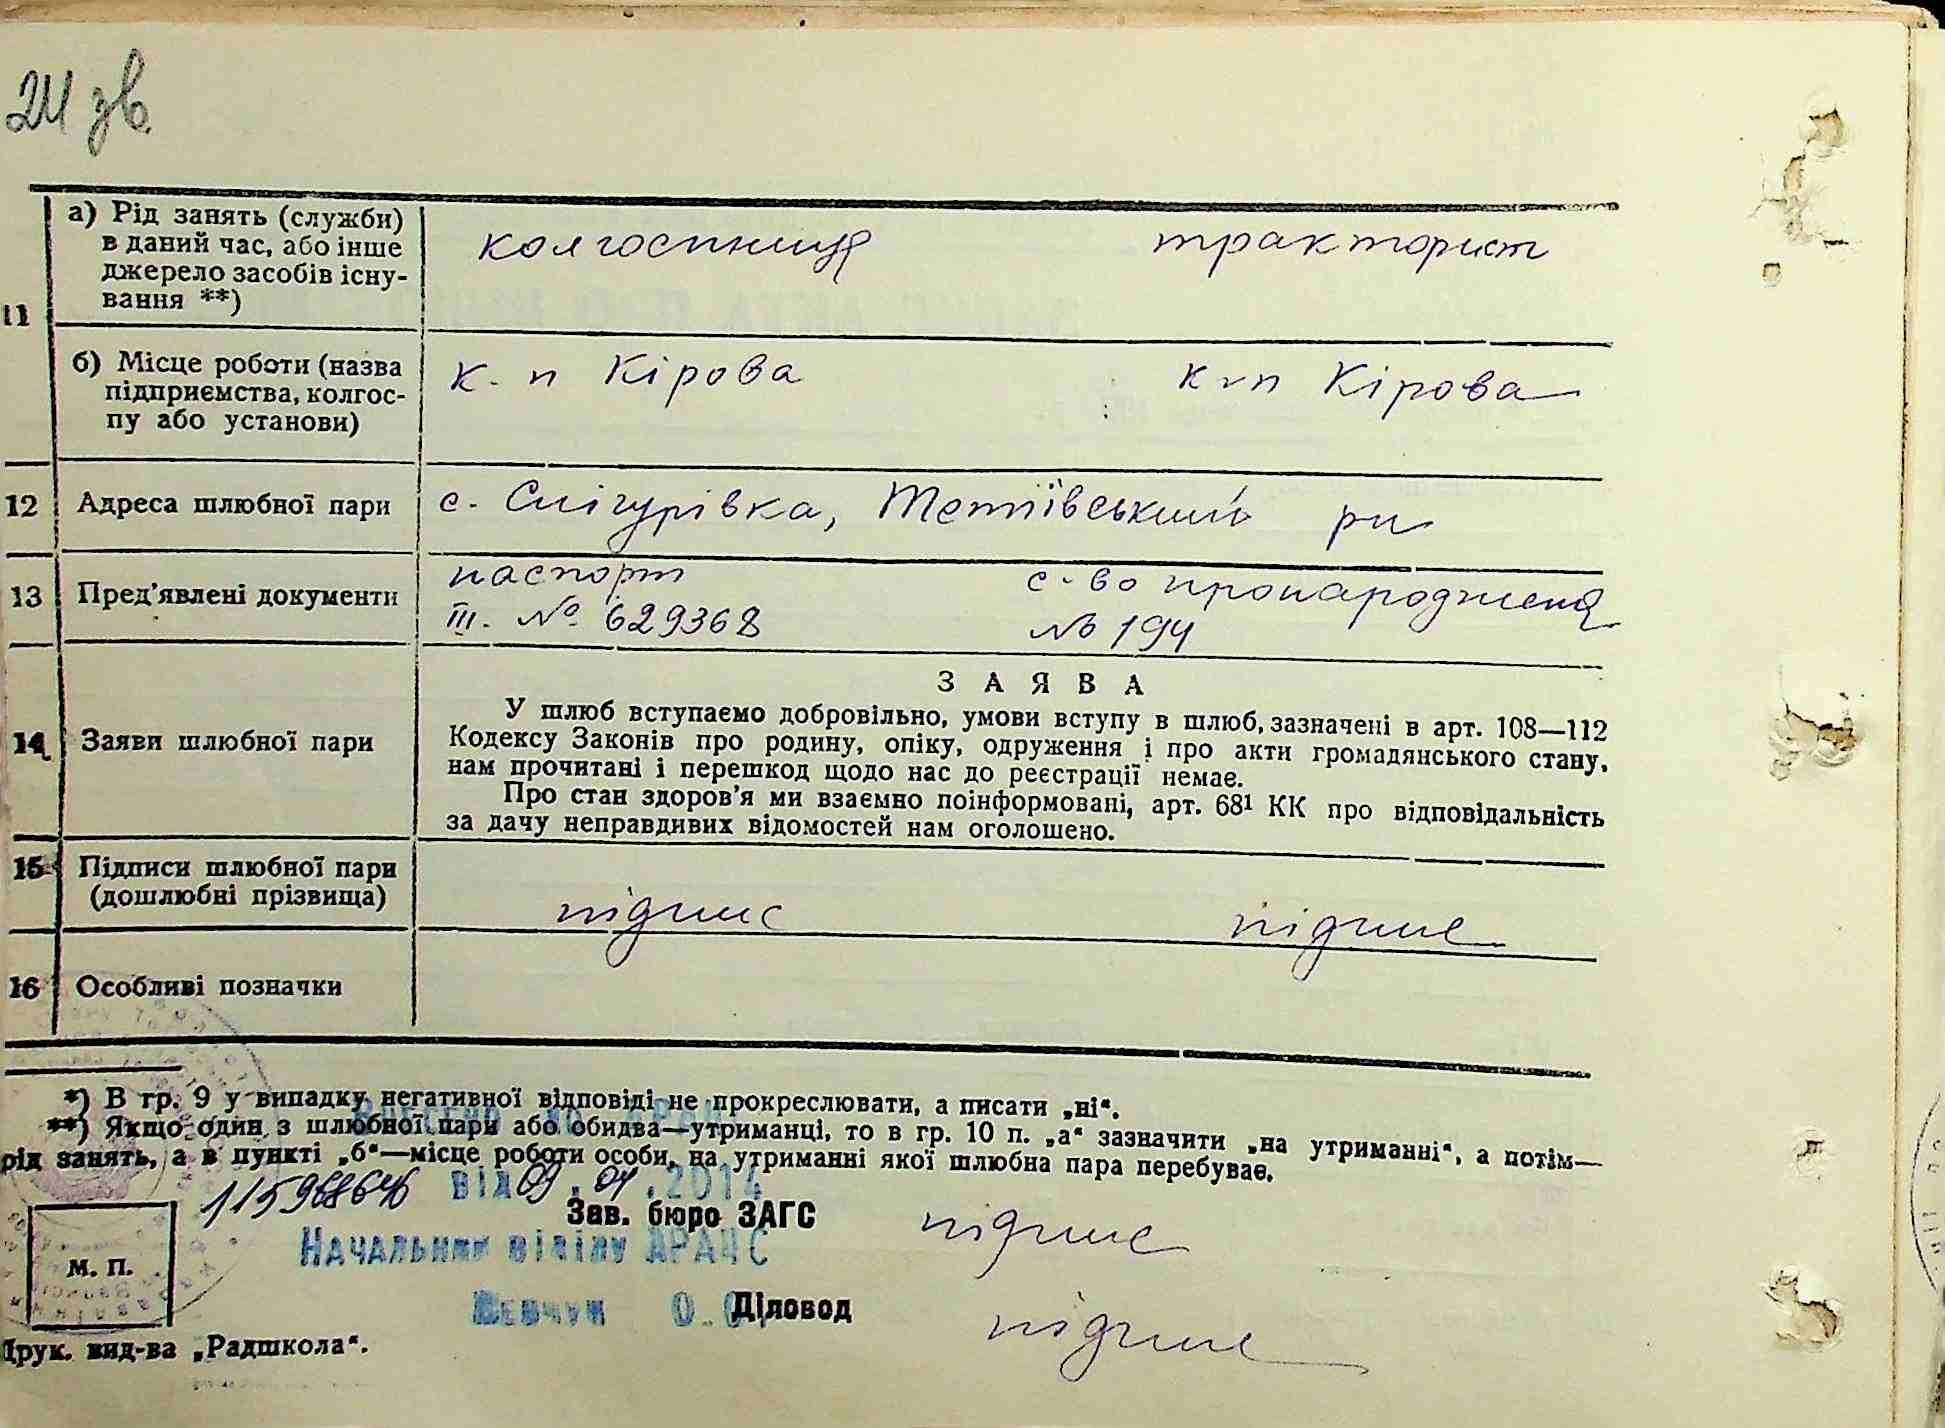 24 зв.
а) Рід занять (служби)
в даний час, або інше
джерело засобів існу-
вання **)
колгоспниця тракторист
11
б) Місце роботи (назва
підприємства, колгос-
пу або установи)
к-п Кірова к-п Кірова
12 Адреса шлюбної пари с. Снігурівка, Тетіївський рн
13 Пред'явлені документи
паспорт с-во про народження
III. № 629368 № 194
14 Заяви шлюбної пари
ЗАЯВА
У шлюб вступаємо добровільно, умови вступу в шлюб, зазначені в арт. 108—112
Кодексу Законів про родину, опіку, одруження і про акти громадянського стану,
нам прочитані і перешкод щодо нас до реєстрації немає.
Про стан здоров'я ми взаємно поінформовані, арт. 68¹ КК про відповідальність
за дачу неправдивих відомостей нам оголошено.
15 Підписи шлюбної пари
(дошлюбні прізвища)
підпис підпис
16 Особливі позначки
*) В гр. 9 у випадку негативної відповіді не прокреслювати, а писати „ні“.
**) Якщо один з шлюбної пари або обидва—утриманці, то в гр. 10 п. „а“ зазначити „на утриманні“, а потім—
рід занять, а в пункті „б“—місце роботи особи, на утриманні якої шлюбна пара перебуває.
від 09.04.2014
Зав. бюро ЗАГС підпис
Начальник відділу ДРАЦС
М. П.
Шевчук О. Діловод підпис
Друк. вид-ва „Радшкола“.